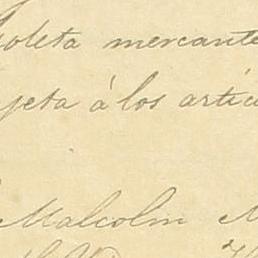 goleta mercante
sujeta á los artícu
Malcolm M